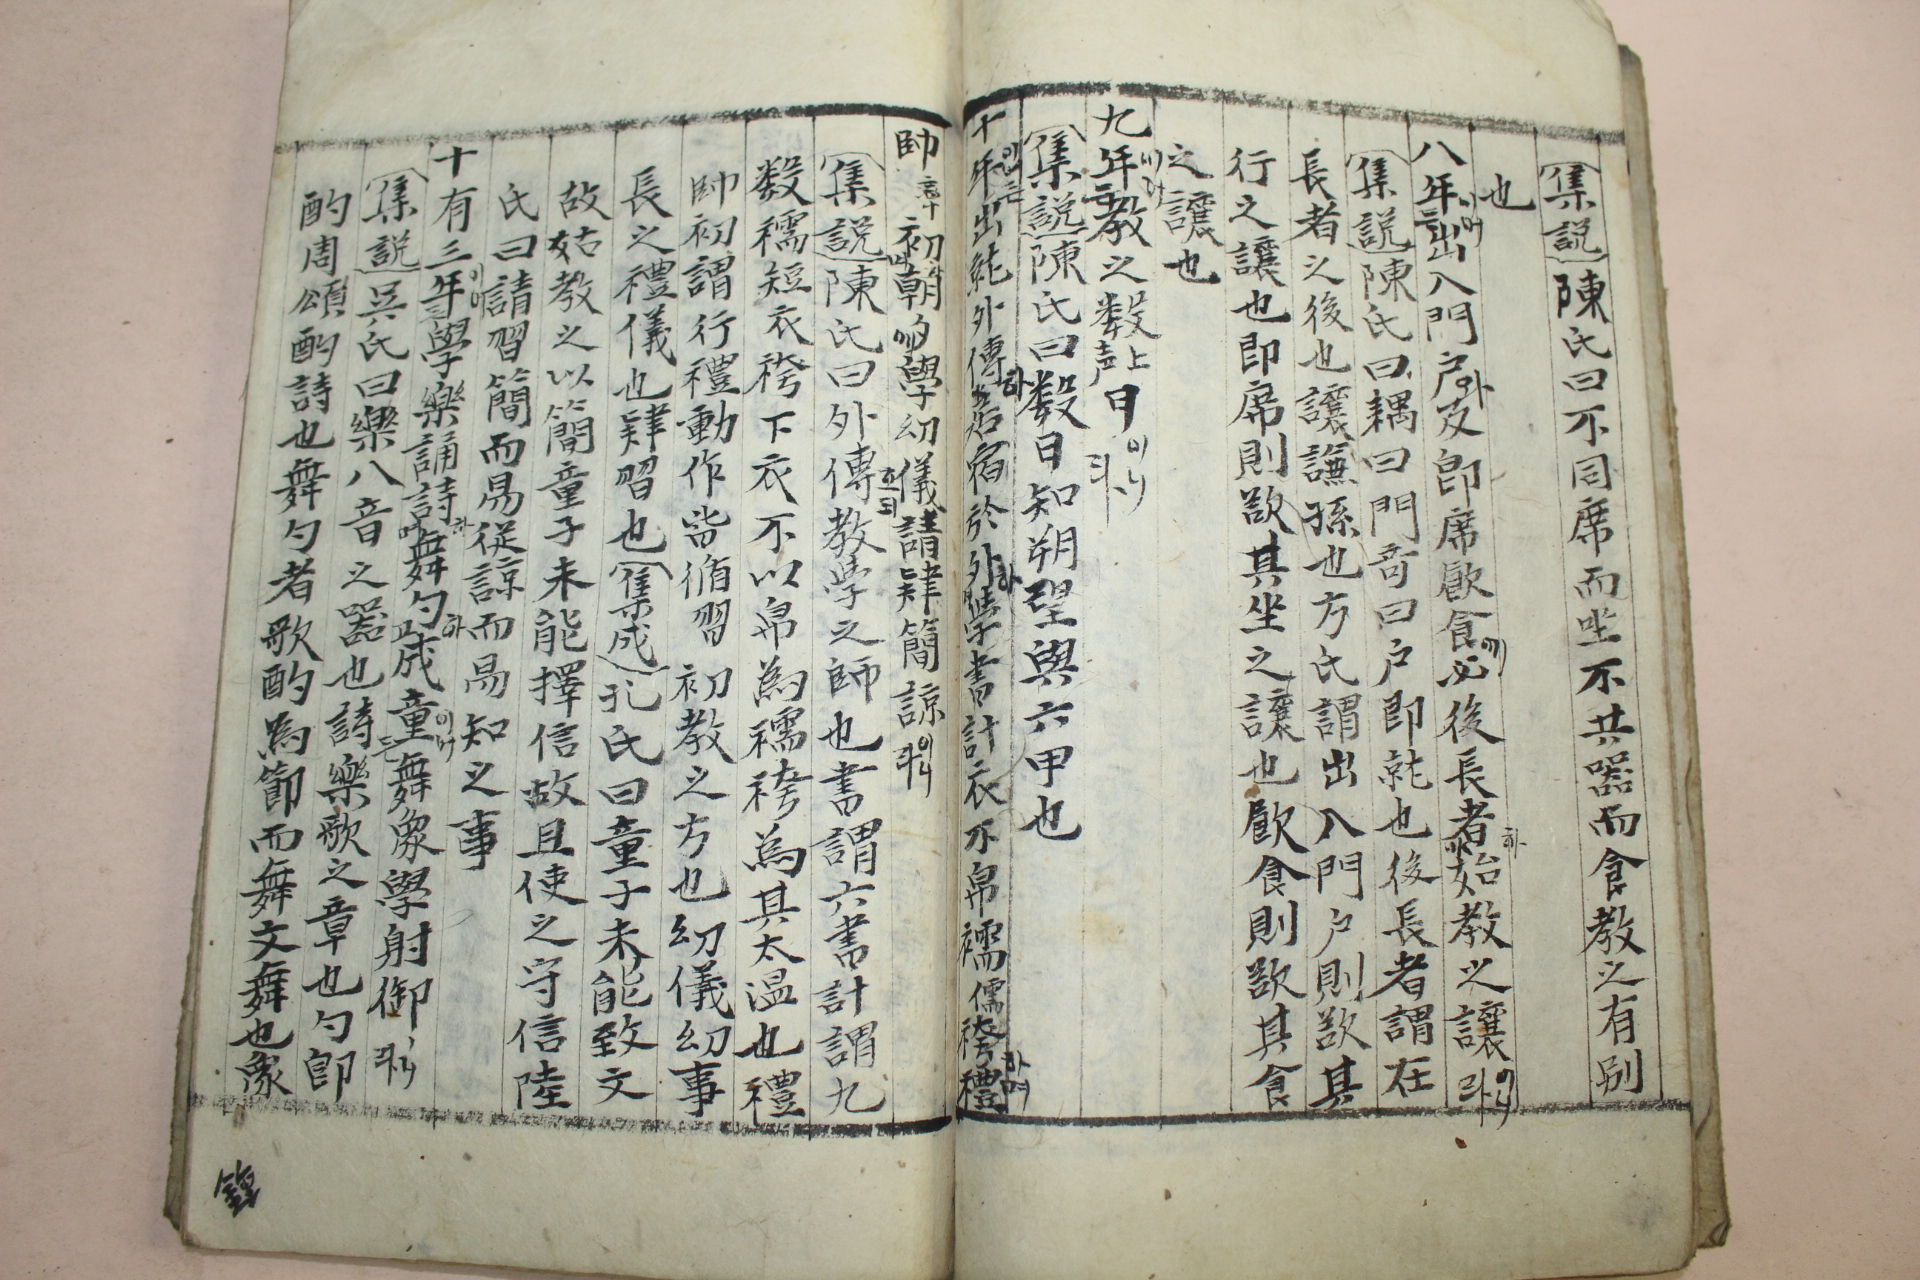 集說 陳氏曰不同席而坐不共器而食教之有別
也
八年出入門戶及卽席飮食必後長者始教之讓
集說 陳氏曰耦曰門奇曰戶即就也後長者謂在
長者之後也讓謙孫也方氏謂出入門戶則欲其
行之讓也即席則欲其坐之讓也飮食則欲其食
之讓也
九年教之數上声日이니라
集說 陳氏曰數日知朔望與六甲也
十年出就外傅居宿於外學書計衣不帛襦儒袴禮
帥初朝夕學幼儀請肄簡諒이니라
集說 陳氏曰外傅教學之師也書謂六書計謂九
數襦短衣袴下衣不以帛為襦袴為其太温也禮
帥初謂行禮動作皆循習初教之方也幼儀幼事
長之禮儀也肄習也 集成 孔氏曰童子未能致文
故姑教之以簡童子未能擇信故且使之守信陸
氏曰請習簡而易從諒而易知之事
十有三年學樂誦詩舞勺成童舞象學射御
集說 吳氏曰樂八音之器也詩樂歌之章也勺卽
酌周頌酌詩也舞勺者歌酌為節而舞文舞也象